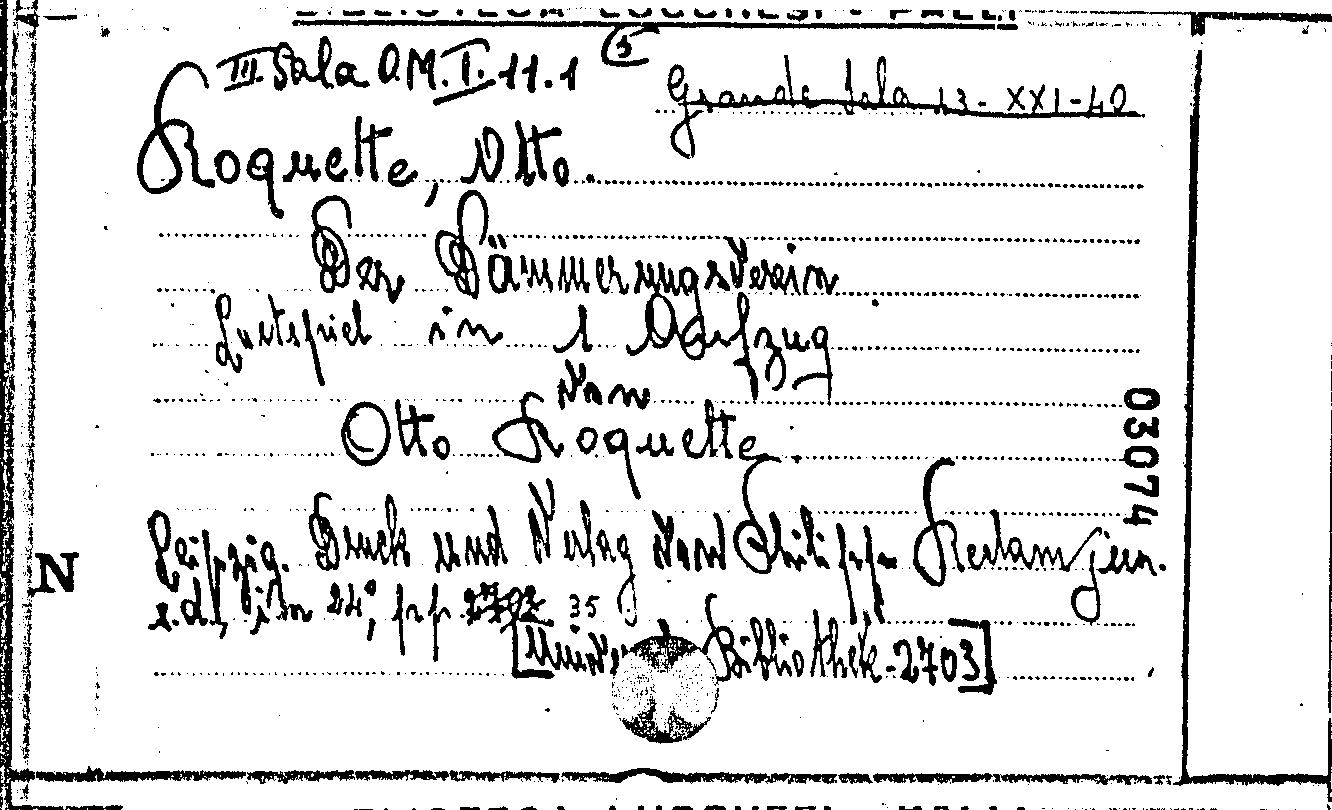 BIBLIOTECA LUCCHESI - PALLI
III Sala O.M.I.11.1
5
Grande Sala 13-XXI-40
Roquette, Otto.
Der Dämmerungsverein
Lustspiel in 1 Aufzug
von
Otto Roquette.
Leipzig. Druck und Verlag von Philipp Reclam jun.
s.d., in 24°, pp. 35
Bibliothek-2703]
03074
N